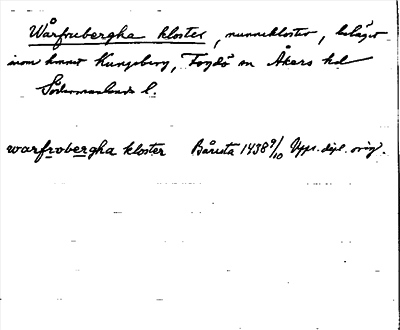 Wårfruberg̲ha kloster, nunnekloster, beläget
inom hemmet Kungsberg, Fogdö sn Åkers hd
Södermanlands l.
warfrobergha kloster Bårsta 1438 9/10 Upps. dipl. orig.